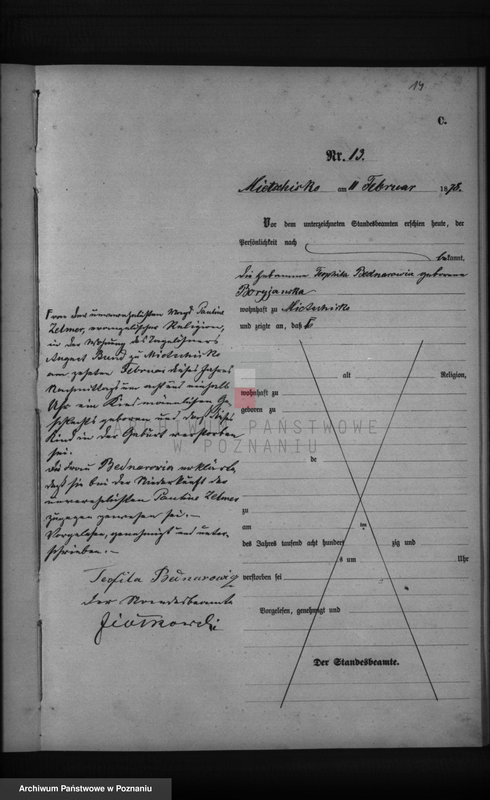 14
C.
Nr. 13.
Mietschisko am 11 Februar 1878.
Vor dem unterzeichneten Standesbeamten erschien heute, der
Persönlichkeit nach
bekannt,
die Hebamme Teophila Bednarowicz geborene
wohnhaft zu Mietschisko
und zeigte an, daß
alt Religion,
wohnhaft zu
geboren zu
de
zu
am ten
des Jahres tausend acht hundert zig und
s um Uhr
verstorben sei
Vorgelesen, genehmigt und
Der Standesbeamte.
von der unverehelichten Magd Pauline
Zelmer, evangelischer Religion,
in der Wohnung des Tagelöhners
August Bund zu Mietschisko
am zehnten Februar dieses Jahres
Nachmittags um acht und einhalb
Uhr ein Kind männlichen Ge-
schlechts geboren und daß dieses
Kind in der Geburt verstorben
sei.
Die Frau Bednarowicz erklärte,
daß sie bei der Niederkunft der
unverehelichten Pauline Zelmer
zugegen gewesen sei. —
Vorgelesen, genehmigt und unter-
schrieben. —
Teofila Bednarowicz
der Standesbeamte
ARCHIWUM PAŃSTWOWE
W POZNANIU
Archiwum Państwowe w Poznaniu